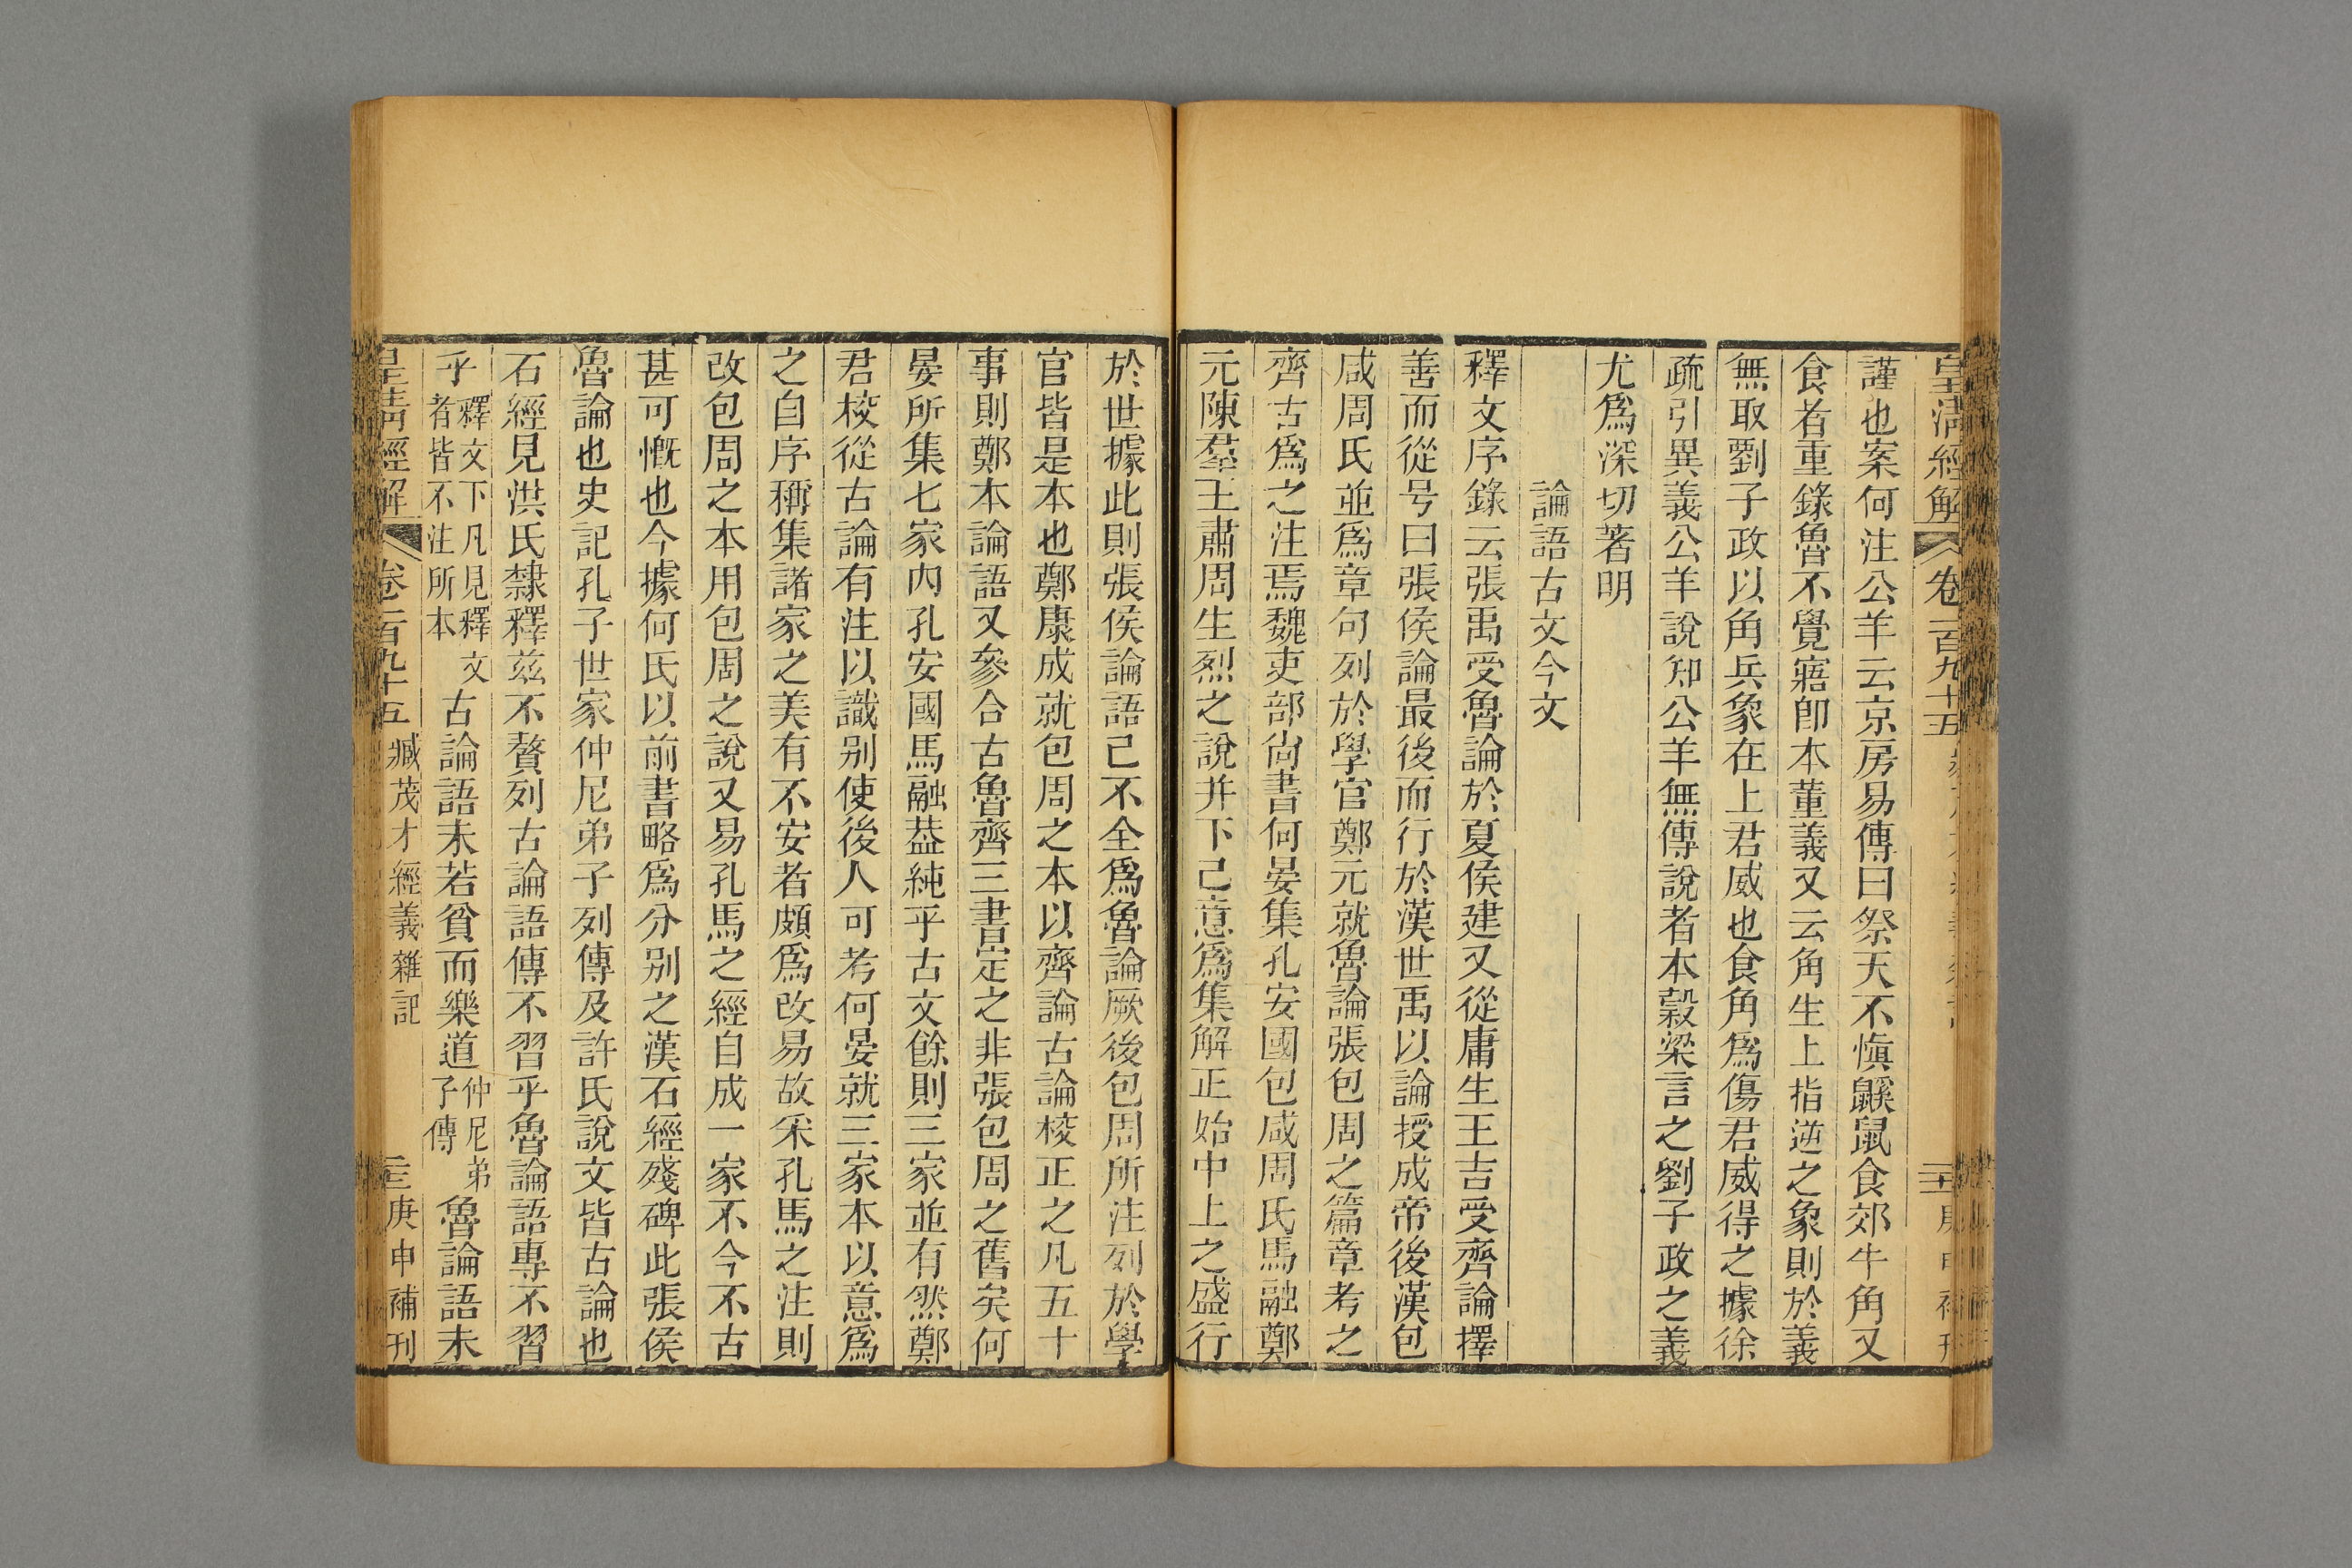 皇清經解 卷一百九十五
謹也案何注公羊云京房易傳曰祭天不愼鼷鼠食郊牛角又
食者重錄魯不覺寤卽本董義又云角生上指逆之象則於義
無取劉子政以角兵象在上君威也食角爲傷君威得之據徐
疏引異義公羊說知公羊無傳說者本穀梁言之劉子政之義
尤爲深切著明
論語古文今文
釋文序錄云張禹受魯論於夏侯建又從庸生王吉受齊論擇
善而從号曰張侯論最後而行於漢世禹以論授成帝後漢包
咸周氏並爲章句列於學官鄭元就魯論張包周之篇章考之
齊古爲之注焉魏吏部尙書何晏集孔安國包咸周氏馬融鄭
元陳羣王肅周生烈之說并下己意爲集解正始中上之盛行
於世據此則張侯論語已不全爲魯論厥後包周所注列於學
官皆是本也鄭康成就包周之本以齊論古論校正之凡五十
事則鄭本論語又參合古魯齊三書定之非張包周之舊矣何
晏所集七家內孔安國馬融葢純乎古文餘則三家並有然鄭
君校從古論有注以識别使後人可考何晏就三家本以意爲
之自序稱集諸家之美有不安者頗爲改易故采孔馬之注則
改包周之本用包周之說又易孔馬之經自成一家不今不古
甚可慨也今據何氏以前書略爲分别之漢石經殘碑此張侯
魯論也史記孔子世家仲尼弟子列傳及許氏說文皆古論也
石經見洪氏隸釋茲不贅列古論語傳不習乎魯論語專不習
乎釋文下凡見釋文者皆不注所本古論語未若貧而樂道仲尼弟子傳魯論語未
皇清經解 卷一百九十五 臧茂才經義雜記 三 庚申補刊